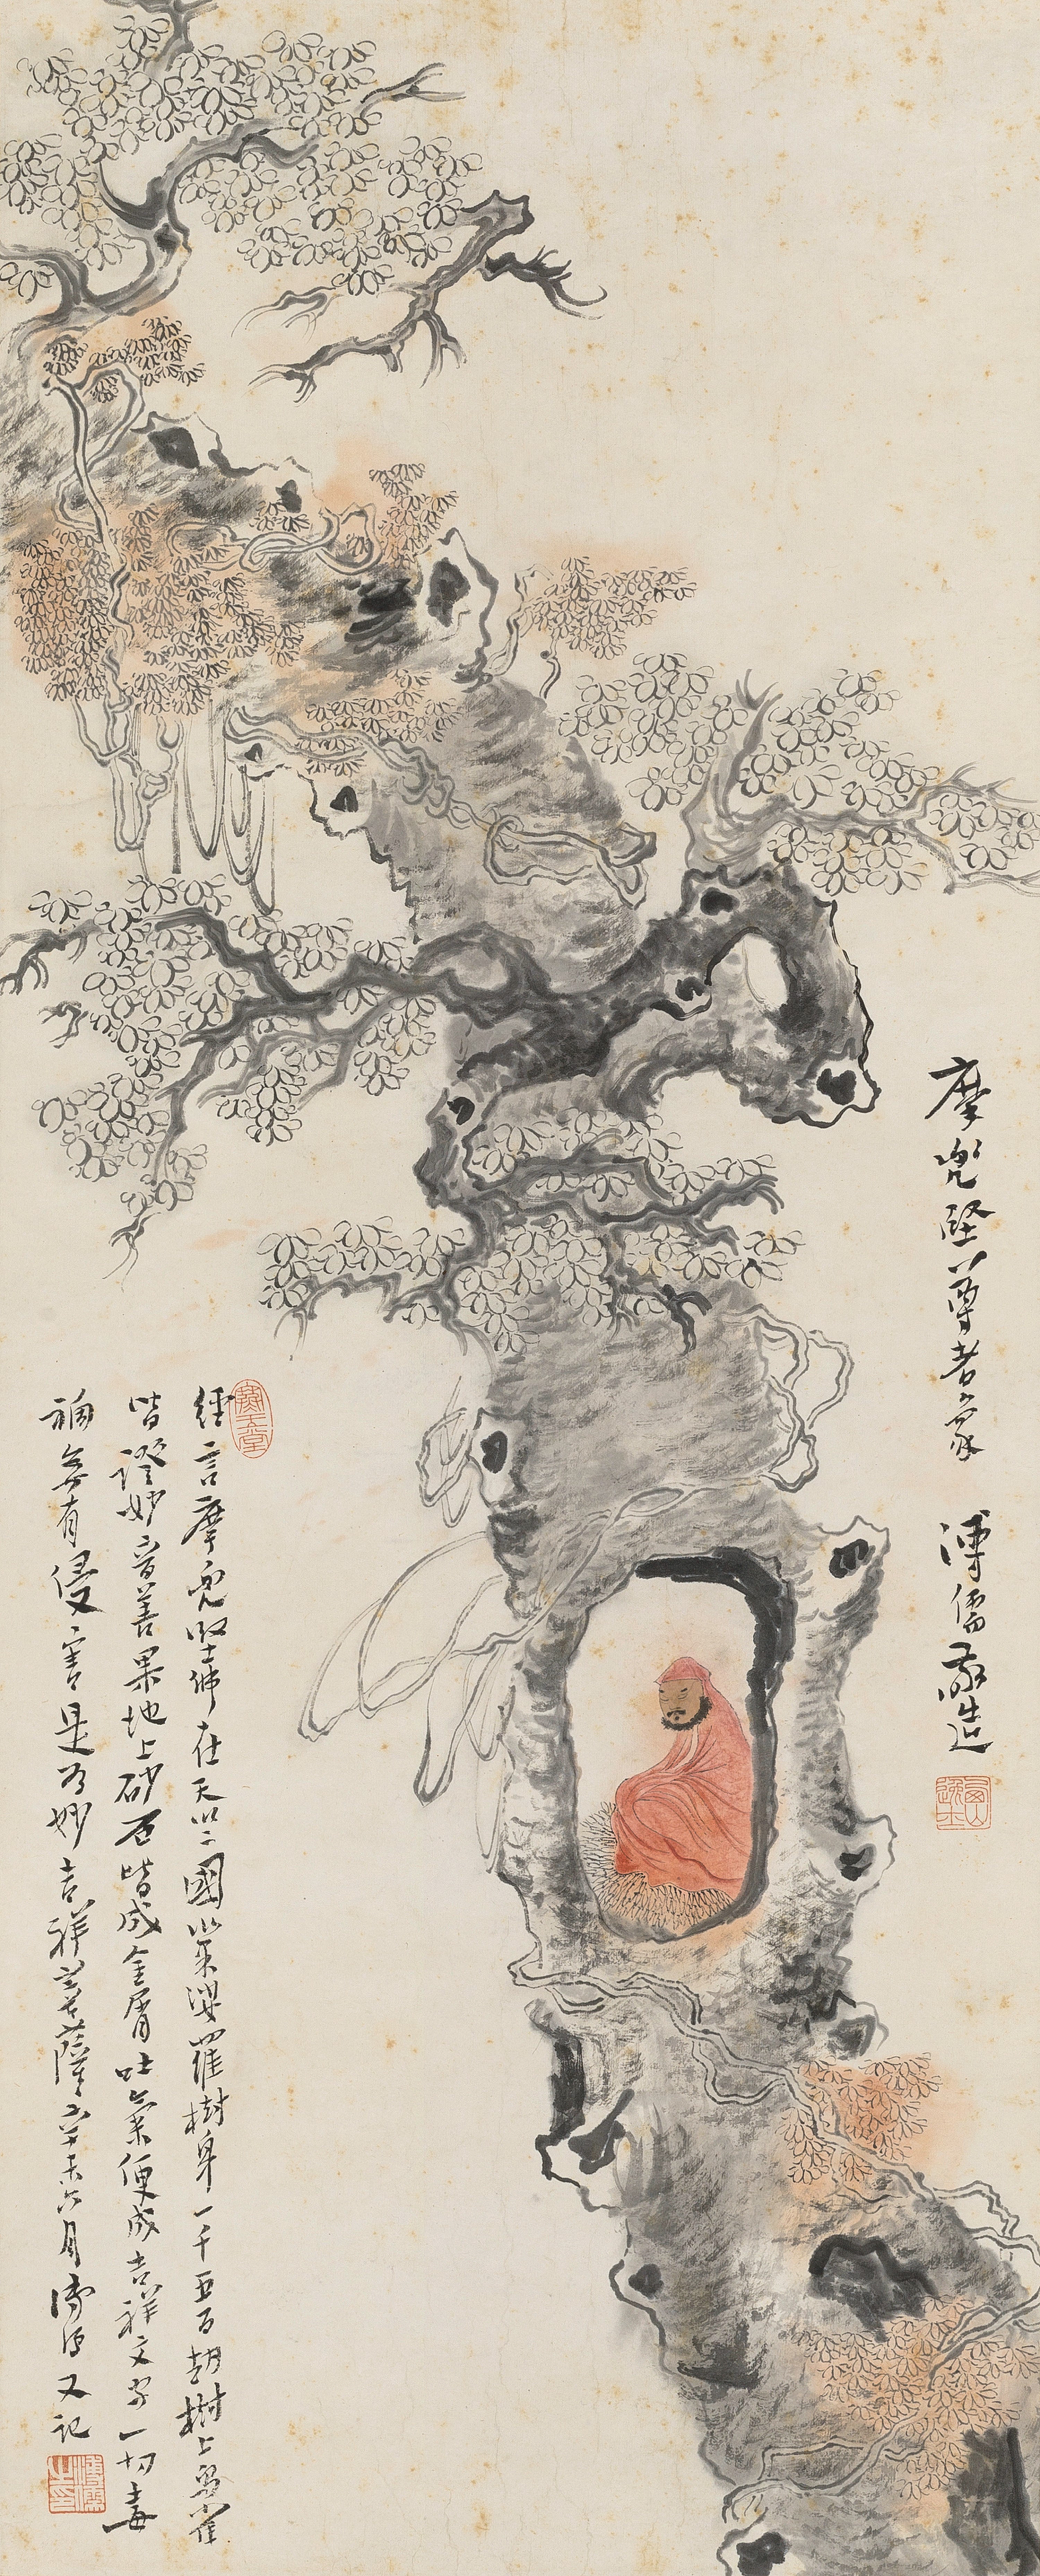 摩兜堅尊者象 溥儒敬造
西山逸士
寒玉堂
經言摩兜堅佛在天竺國以菜婆羅樹身一千五百劫樹上鳥雀
皆證妙音善果地上砂石皆成金屑吐氣便成吉祥文字一切毒
禍無有侵害是為妙吉祥菩薩辛未六月溥儒又記
溥儒之印